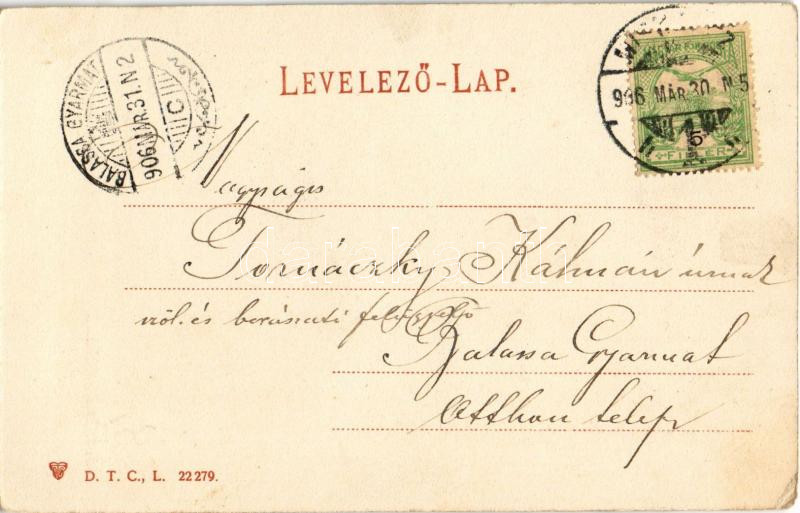 LEVELEZŐ-LAP.
BALASSA GYARMAT
906 MÁR. 31. N 2
C
906 MÁR 30. N 5
FILLÉR
Nagyságos
Tornáczky Kálmán úrnak
szől. és borászati felügyelő
Balassa Gyarmat
Otthon telep
D. T. C., L. 22279.